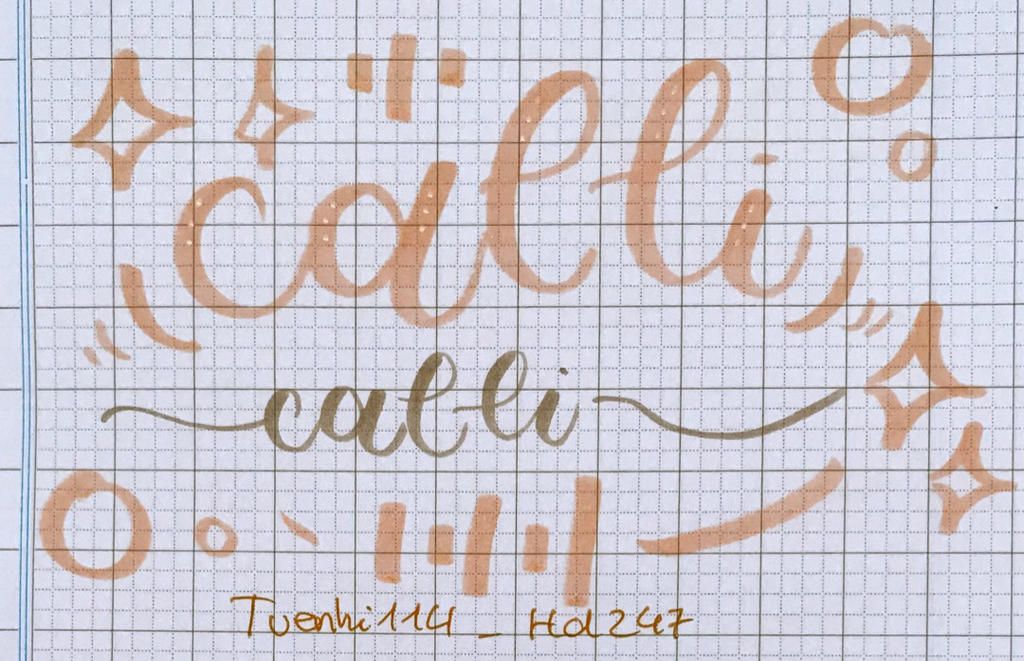 calli
calli
Tuenhi114 _ Hd247